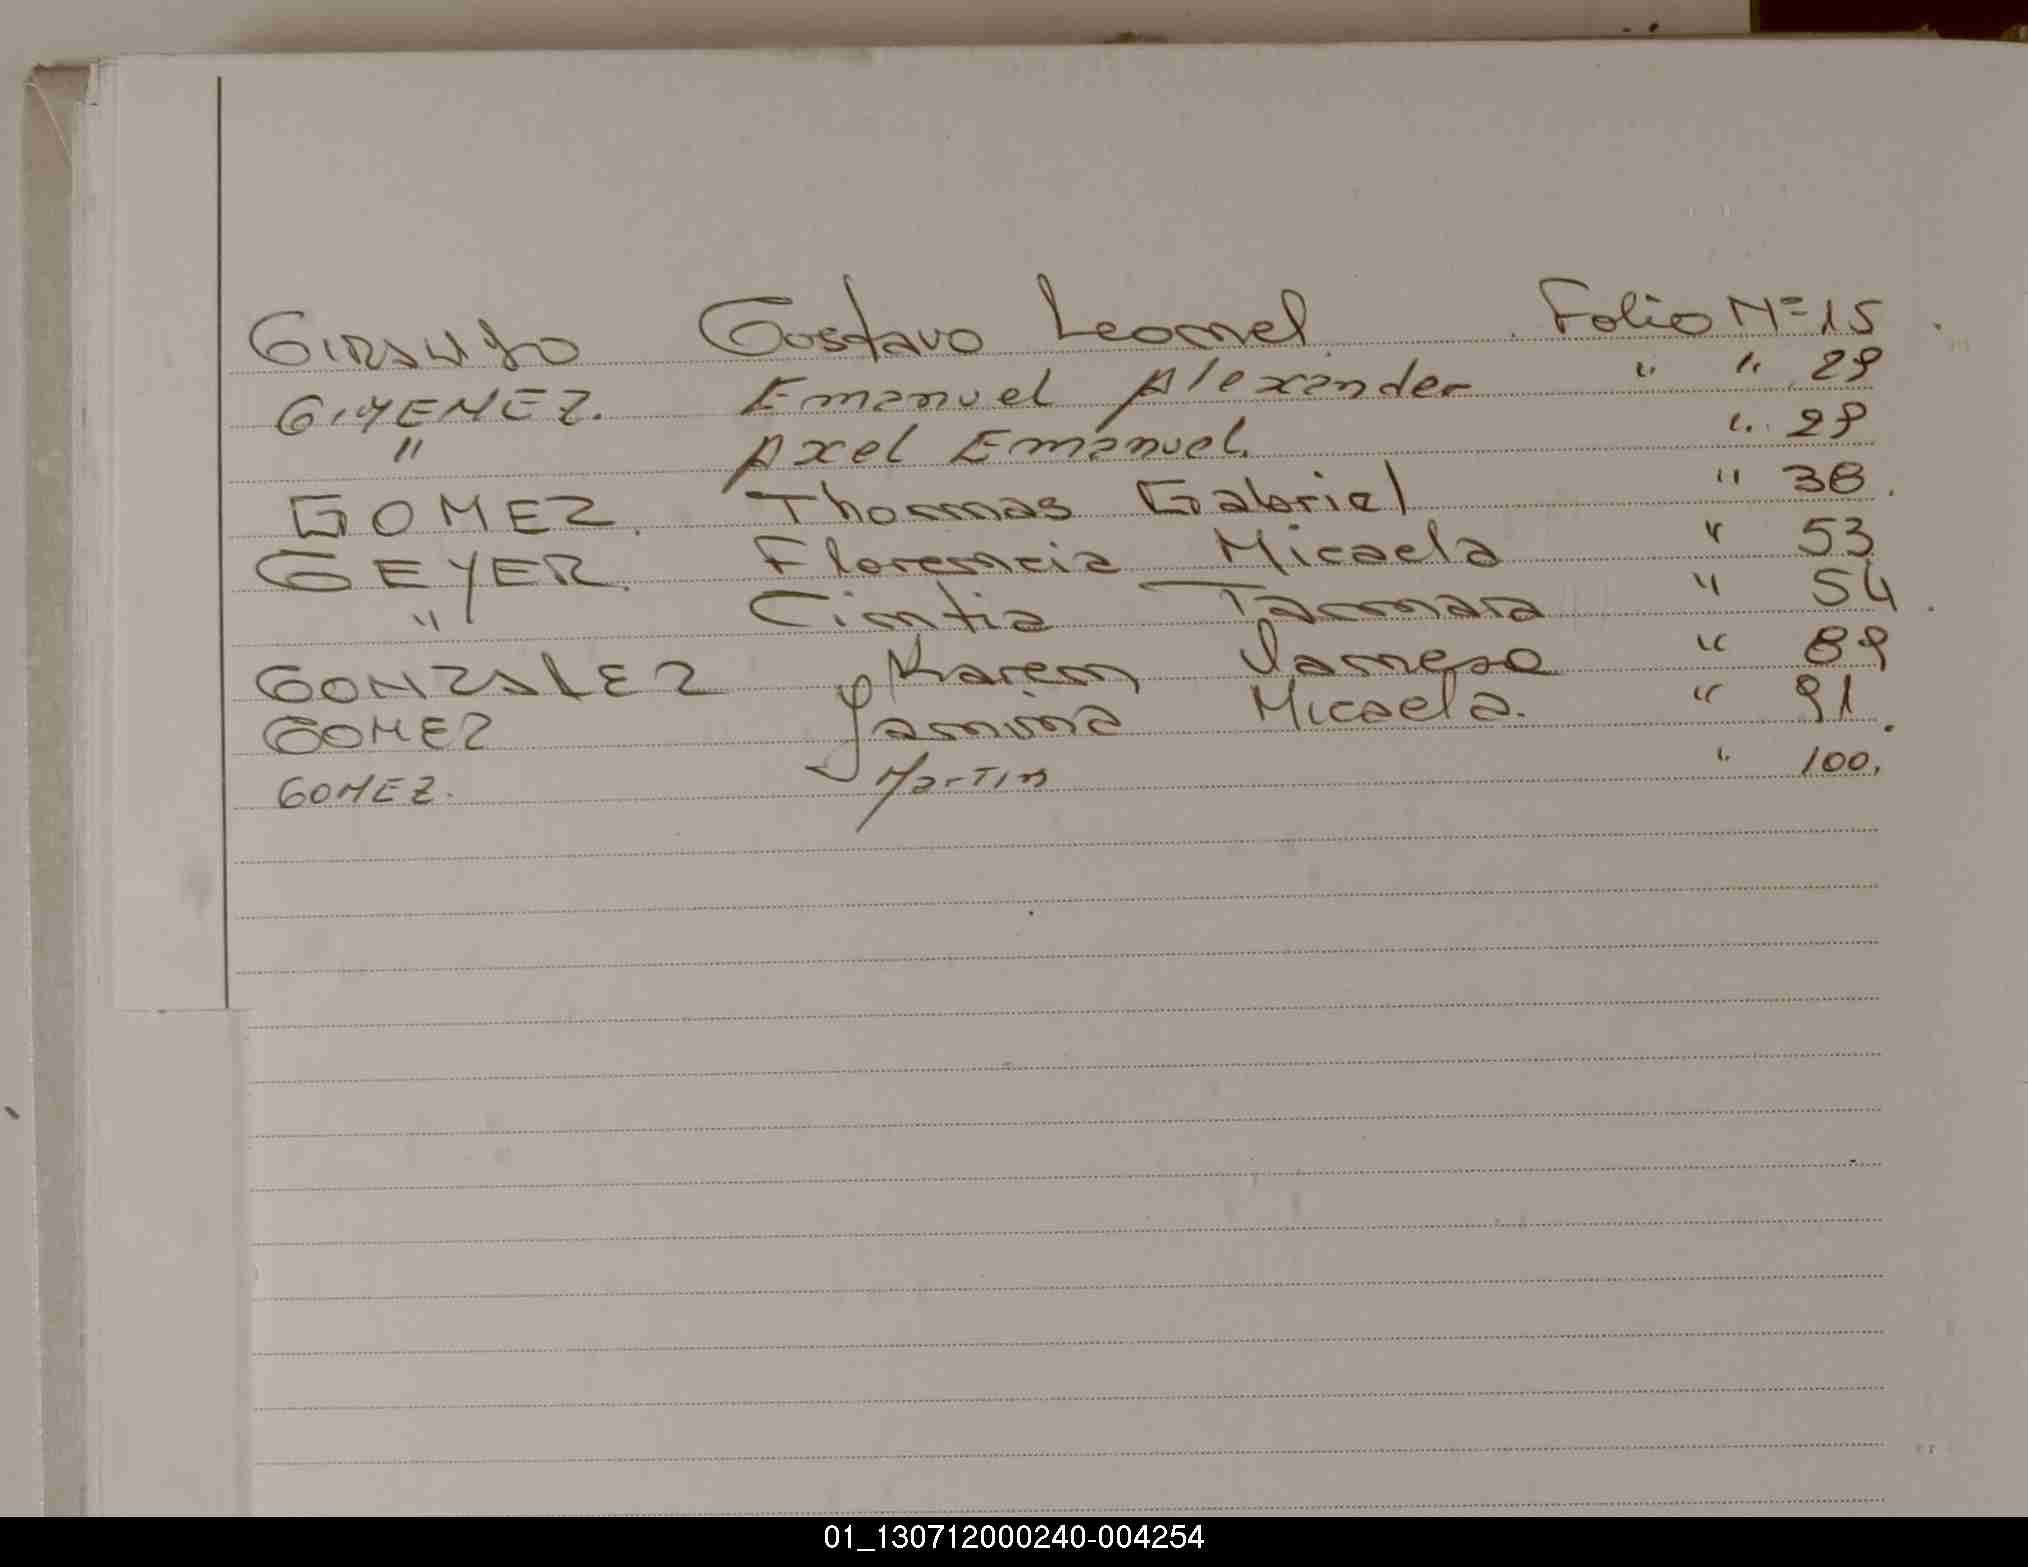 Gustavo Leonel Folio Nº 15
GIMENEZ. Emanuel Alexander " " 29
" Axel Emanuel. " 29
GOMEZ. Thomas Gabriel " 38.
GEYER. Florencia Micaela " 53
" Cintia Tamara " 54.
GONZALEZ Karem Vanesa " 89
GOMEZ Yanina Micaela. " 91.
GOMEZ. Martin " 100.
01_130712000240-004254